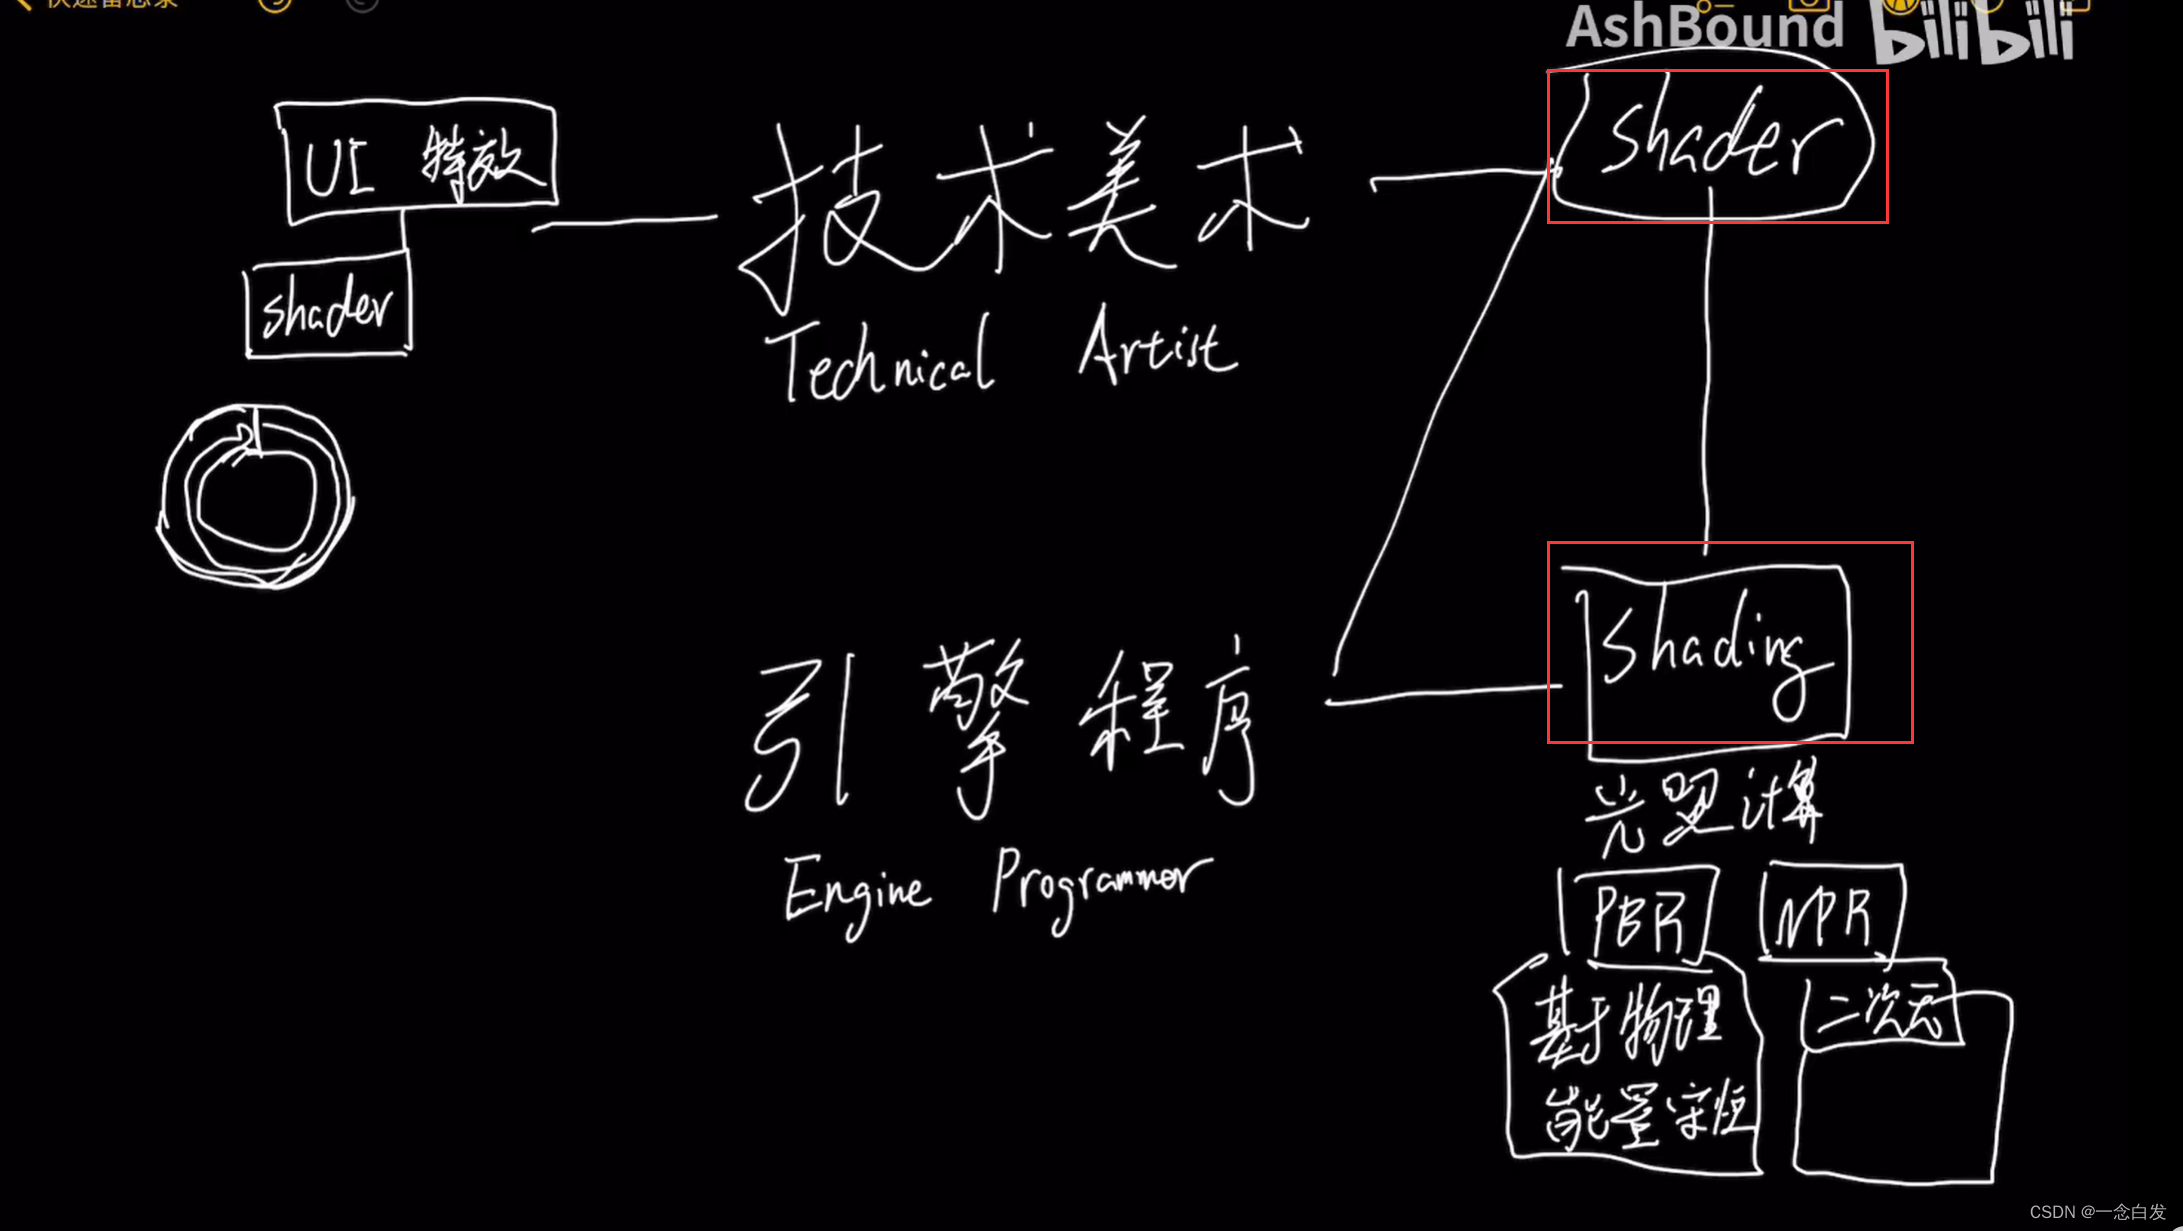 快速备忘录
AshBound bilibili
UI 特效
shader
技术美术
Technical Artist
shader
引擎程序
Engine Programmer
shading
光照计算
PBR
NPR
基于物理
能量守恒
二次元
CSDN @一念白发